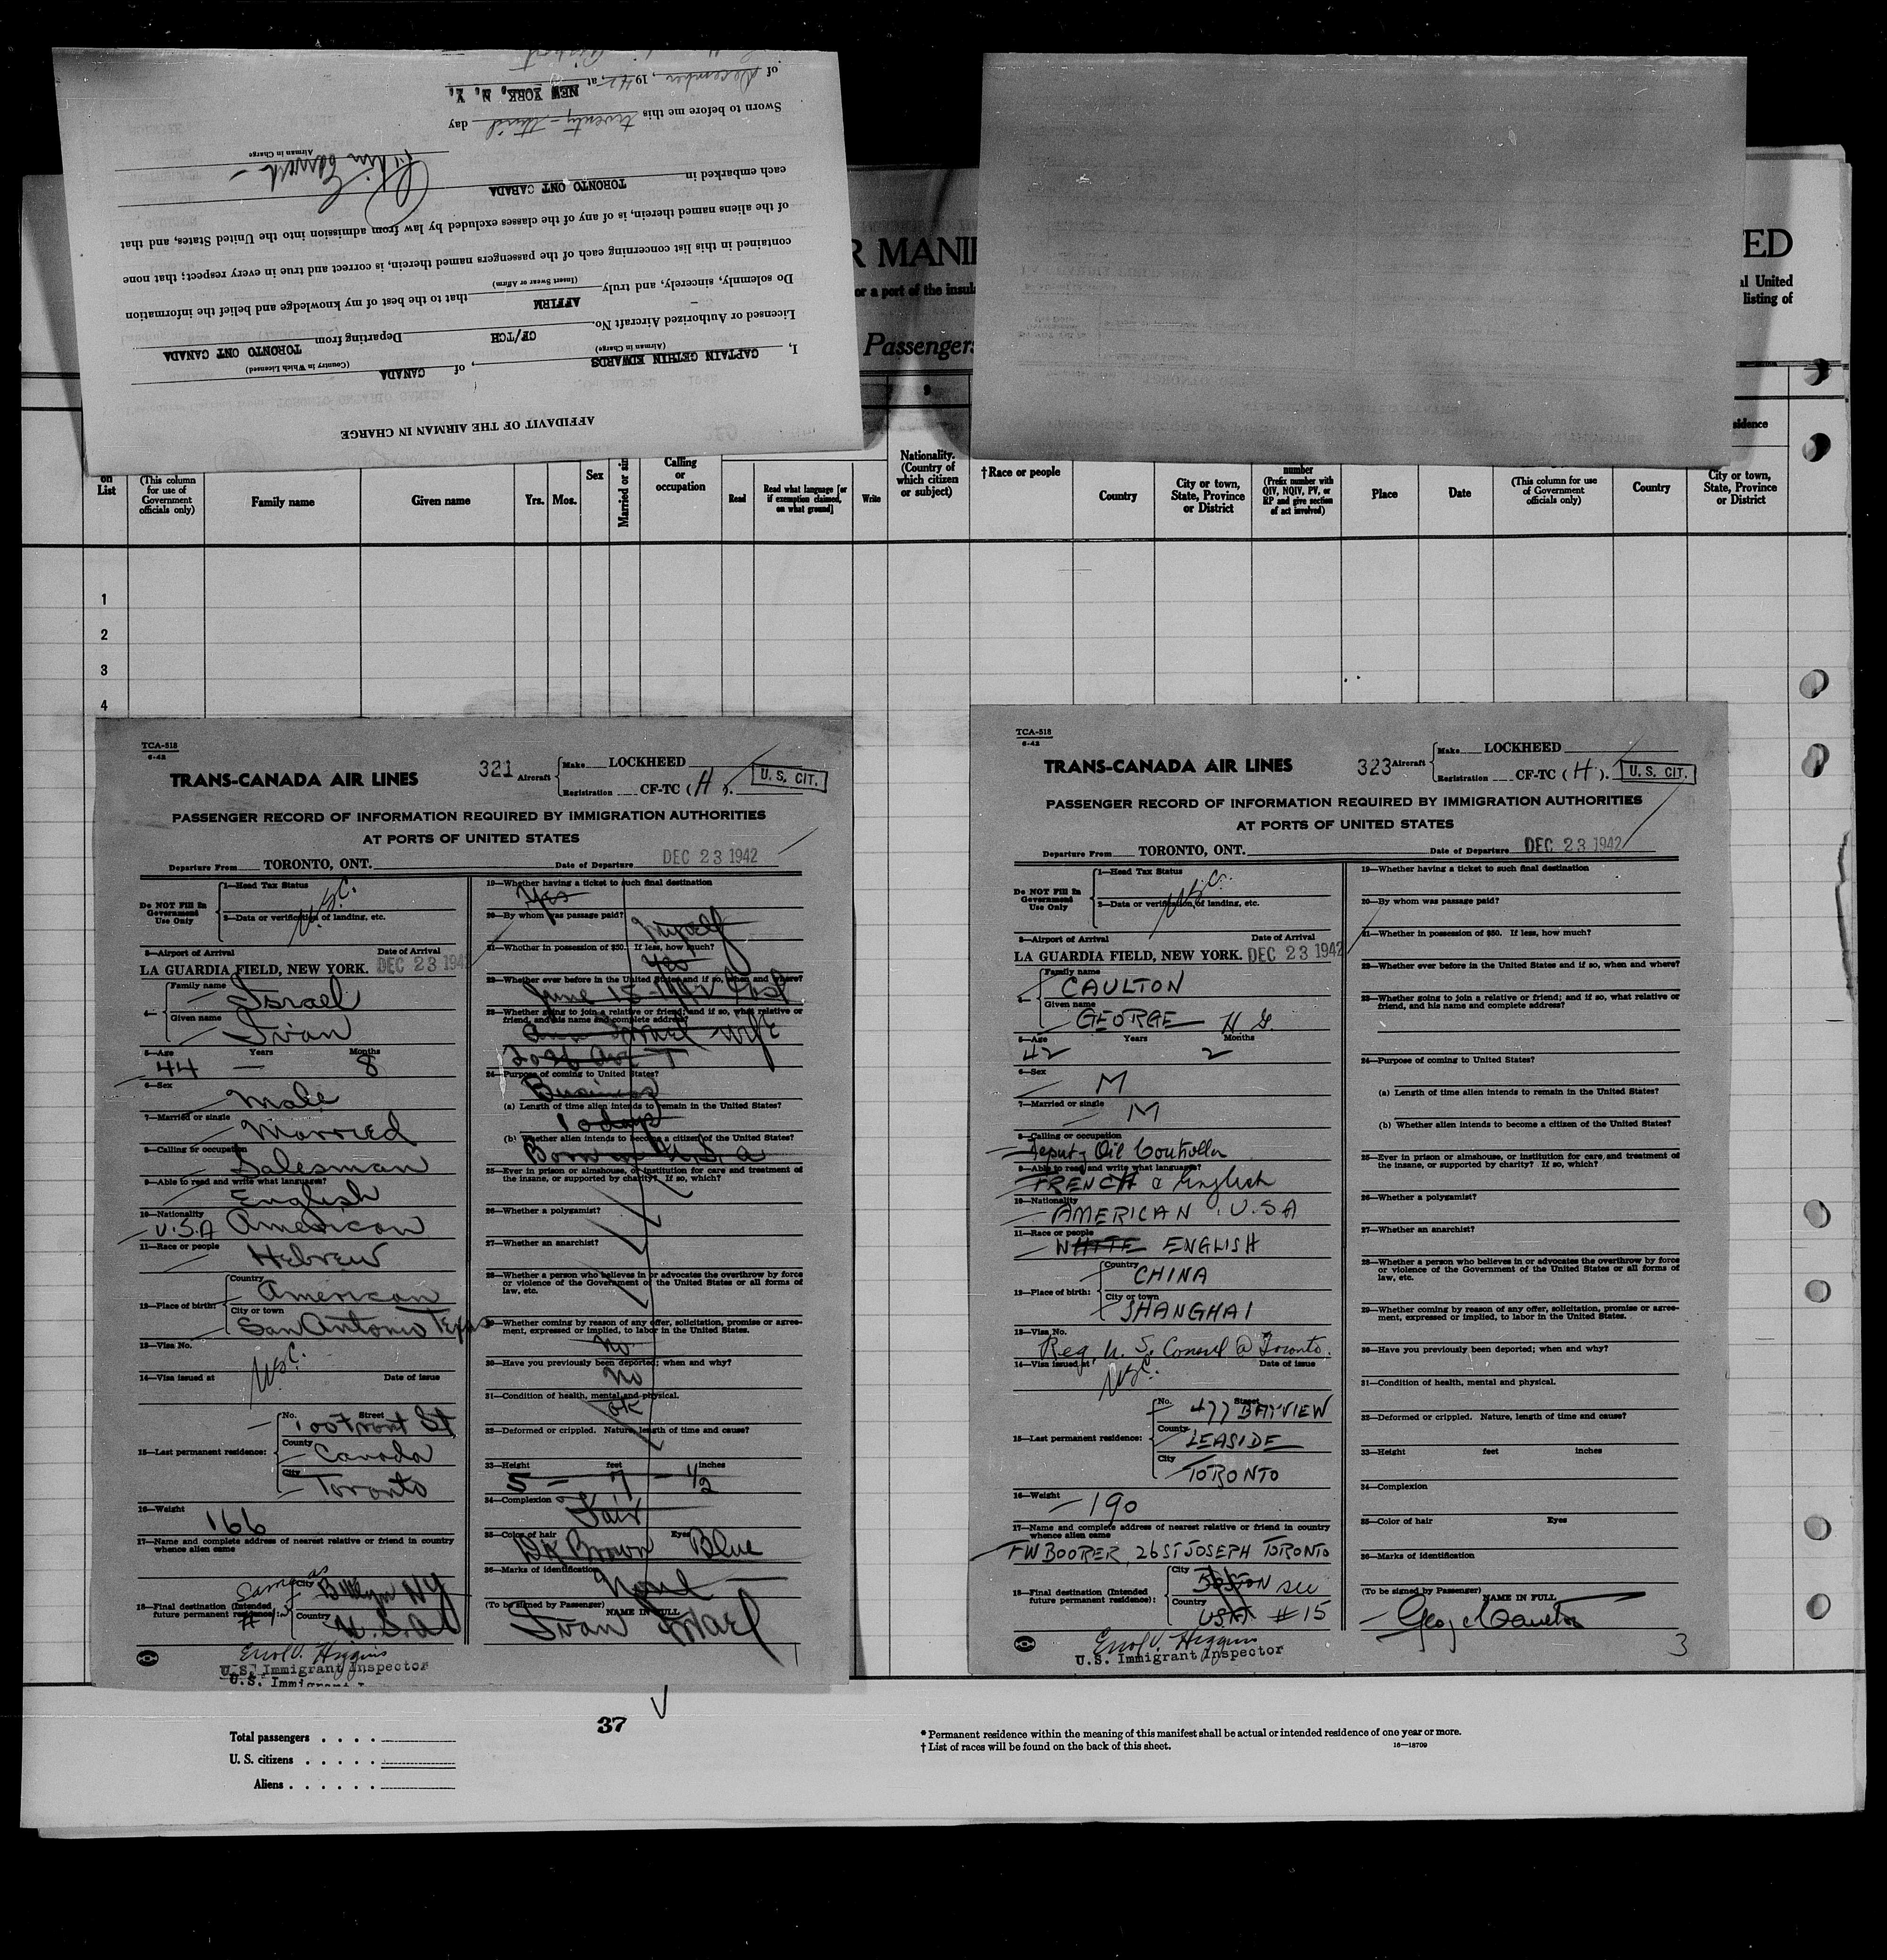 AFFIDAVIT OF THE AIRMAN IN CHARGE
I, CAPTAIN GETHIN EDWARDS, of CANADA
(Airman in Charge) (Country in Which Licensed)
Licensed or Authorized Aircraft No. CF/TCH Departing from TORONTO ONT CANADA
Do solemnly, sincerely, and truly AFFIRM that to the best of my knowledge and belief the information
(Insert Swear or Affirm)
contained in this list concerning each of the passengers named therein, is correct and true in every respect; that none
of the aliens named therein, is of any of the classes excluded by law from admission into the United States, and that
each embarked in TORONTO ONT CANADA
Airman in Charge
Sworn to before me this twenty-third day
of December, 1942, at NEW YORK, N. Y.
R MANIF
or a port of the insula
Passengers
ED
al United
listing of
on
List
(This column
for use of
Government
officials only)
Family name
Given name
Yrs.
Mos.
Sex
Married or sin
Calling
or
occupation
Read
Read what language [or
if exemption claimed,
on what ground]
Write
Nationality.
(Country of
which citizen
or subject)
†Race or people
Country
City or town,
State, Province
or District
number
(Prefix number with
QIV, NQIV, PV, or
RP and give section
of act involved)
Place
Date
(This column for use
of Government
officials only)
Country
sidence
City or town,
State, Province
or District
1
2
3
4
TCA-518
6-42
TRANS-CANADA AIR LINES
321 Aircraft
Make LOCKHEED
Registration CF-TC (H).
U. S. CIT.
PASSENGER RECORD OF INFORMATION REQUIRED BY IMMIGRATION AUTHORITIES
AT PORTS OF UNITED STATES
Departure From TORONTO, ONT. Date of Departure DEC 23 1942
Do NOT Fill In
Government
Use Only
1—Head Tax Status
U.S.C.
2—Data or verification of landing, etc.
3—Airport of Arrival Date of Arrival
LA GUARDIA FIELD, NEW YORK. DEC 23 194
4—
Family name
Israel
Given name
Ivan
5—Age Years Months
44 — 8
6—Sex
Male
7—Married or single
Married
8—Calling or occupation
Salesman
9—Able to read and write what languages?
English
10—Nationality
U.S.A American
11—Race or people
Hebrew
12—Place of birth:
Country
American
City or town
San Antonio Texas
13—Visa No.
U.S.C.
14—Visa issued at Date of issue
15—Last permanent residence:
No. Street
100 Front St
County
Canada
City
Toronto
16—Weight
166
17—Name and complete address of nearest relative or friend in country
whence alien came
18—Final destination (Intended
future permanent residence):
Same as
City
Bklyn NY
Country
U.S.A
Errol V. Higgins
U.S. Immigrant Inspector
U.S. Immigrant I
19—Whether having a ticket to such final destination
Yes
20—By whom was passage paid?
Myself
21—Whether in possession of $50. If less, how much?
Yes
22—Whether ever before in the United States and if so, when and where?
June 15
23—Whether going to join a relative or friend; and if so, what relative or
friend, and his name and complete address?
Israel Wife
Ave T
24—Purpose of coming to United States?
Business
(a) Length of time alien intends to remain in the United States?
10 days
(b) Whether alien intends to become a citizen of the United States?
Born in U.S.A
25—Ever in prison or almshouse, or institution for care and treatment of
the insane, or supported by charity? If so, which?
26—Whether a polygamist?
27—Whether an anarchist?
28—Whether a person who believes in or advocates the overthrow by force
or violence of the Government of the United States or all forms of
law, etc.
29—Whether coming by reason of any offer, solicitation, promise or agree-
ment, expressed or implied, to labor in the United States.
No
30—Have you previously been deported; when and why?
No
31—Condition of health, mental and physical.
OK
32—Deformed or crippled. Nature, length of time and cause?
33—Height feet inches
5 — 7 — 1/2
34—Complexion
Fair
35—Color of hair Eyes
Dk Brown Blue
36—Marks of identification
None
(To be signed by Passenger) NAME IN FULL
Ivan Israel
1
TCA-518
6-42
TRANS-CANADA AIR LINES
323 Aircraft
Make LOCKHEED
Registration CF-TC (H).
U. S. CIT.
PASSENGER RECORD OF INFORMATION REQUIRED BY IMMIGRATION AUTHORITIES
AT PORTS OF UNITED STATES
Departure From TORONTO, ONT. Date of Departure DEC 23 1942
Do NOT Fill In
Government
Use Only
1—Head Tax Status
U.S.C.
2—Data or verification of landing, etc.
3—Airport of Arrival Date of Arrival
LA GUARDIA FIELD, NEW YORK. DEC 23 1942
4—
Family name
CAULTON
Given name
GEORGE H G
5—Age Years Months
42 2
6—Sex
M
7—Married or single
M
8—Calling or occupation
Deputy Oil Controller
9—Able to read and write what languages?
FRENCH & English
10—Nationality
AMERICAN U.S.A
11—Race or people
WHITE ENGLISH
12—Place of birth:
Country
CHINA
City or town
SHANGHAI
13—Visa No.
Reg. U. S. Consul @ Toronto.
14—Visa issued at Date of issue
U.S.C.
15—Last permanent residence:
No. Street
477 BAYVIEW
County
LEASIDE
City
TORONTO
16—Weight
190
17—Name and complete address of nearest relative or friend in country
whence alien came
FW BOORER, 26 ST JOSEPH TORONTO
18—Final destination (Intended
future permanent residence):
City
BOSTON see
Country
USA #15
Errol V. Higgins
U.S. Immigrant Inspector
19—Whether having a ticket to such final destination
20—By whom was passage paid?
21—Whether in possession of $50. If less, how much?
22—Whether ever before in the United States and if so, when and where?
23—Whether going to join a relative or friend; and if so, what relative or
friend, and his name and complete address?
24—Purpose of coming to United States?
(a) Length of time alien intends to remain in the United States?
(b) Whether alien intends to become a citizen of the United States?
25—Ever in prison or almshouse, or institution for care and treatment of
the insane, or supported by charity? If so, which?
26—Whether a polygamist?
27—Whether an anarchist?
28—Whether a person who believes in or advocates the overthrow by force
or violence of the Government of the United States or all forms of
law, etc.
29—Whether coming by reason of any offer, solicitation, promise or agree-
ment, expressed or implied, to labor in the United States.
30—Have you previously been deported; when and why?
31—Condition of health, mental and physical.
32—Deformed or crippled. Nature, length of time and cause?
33—Height feet inches
34—Complexion
35—Color of hair Eyes
36—Marks of identification
(To be signed by Passenger) NAME IN FULL
Geo Caulton
3
37
Total passengers . . . .
U. S. citizens . . . . .
Aliens . . . . . .
* Permanent residence within the meaning of this manifest shall be actual or intended residence of one year or more.
† List of races will be found on the back of this sheet.
16—18709